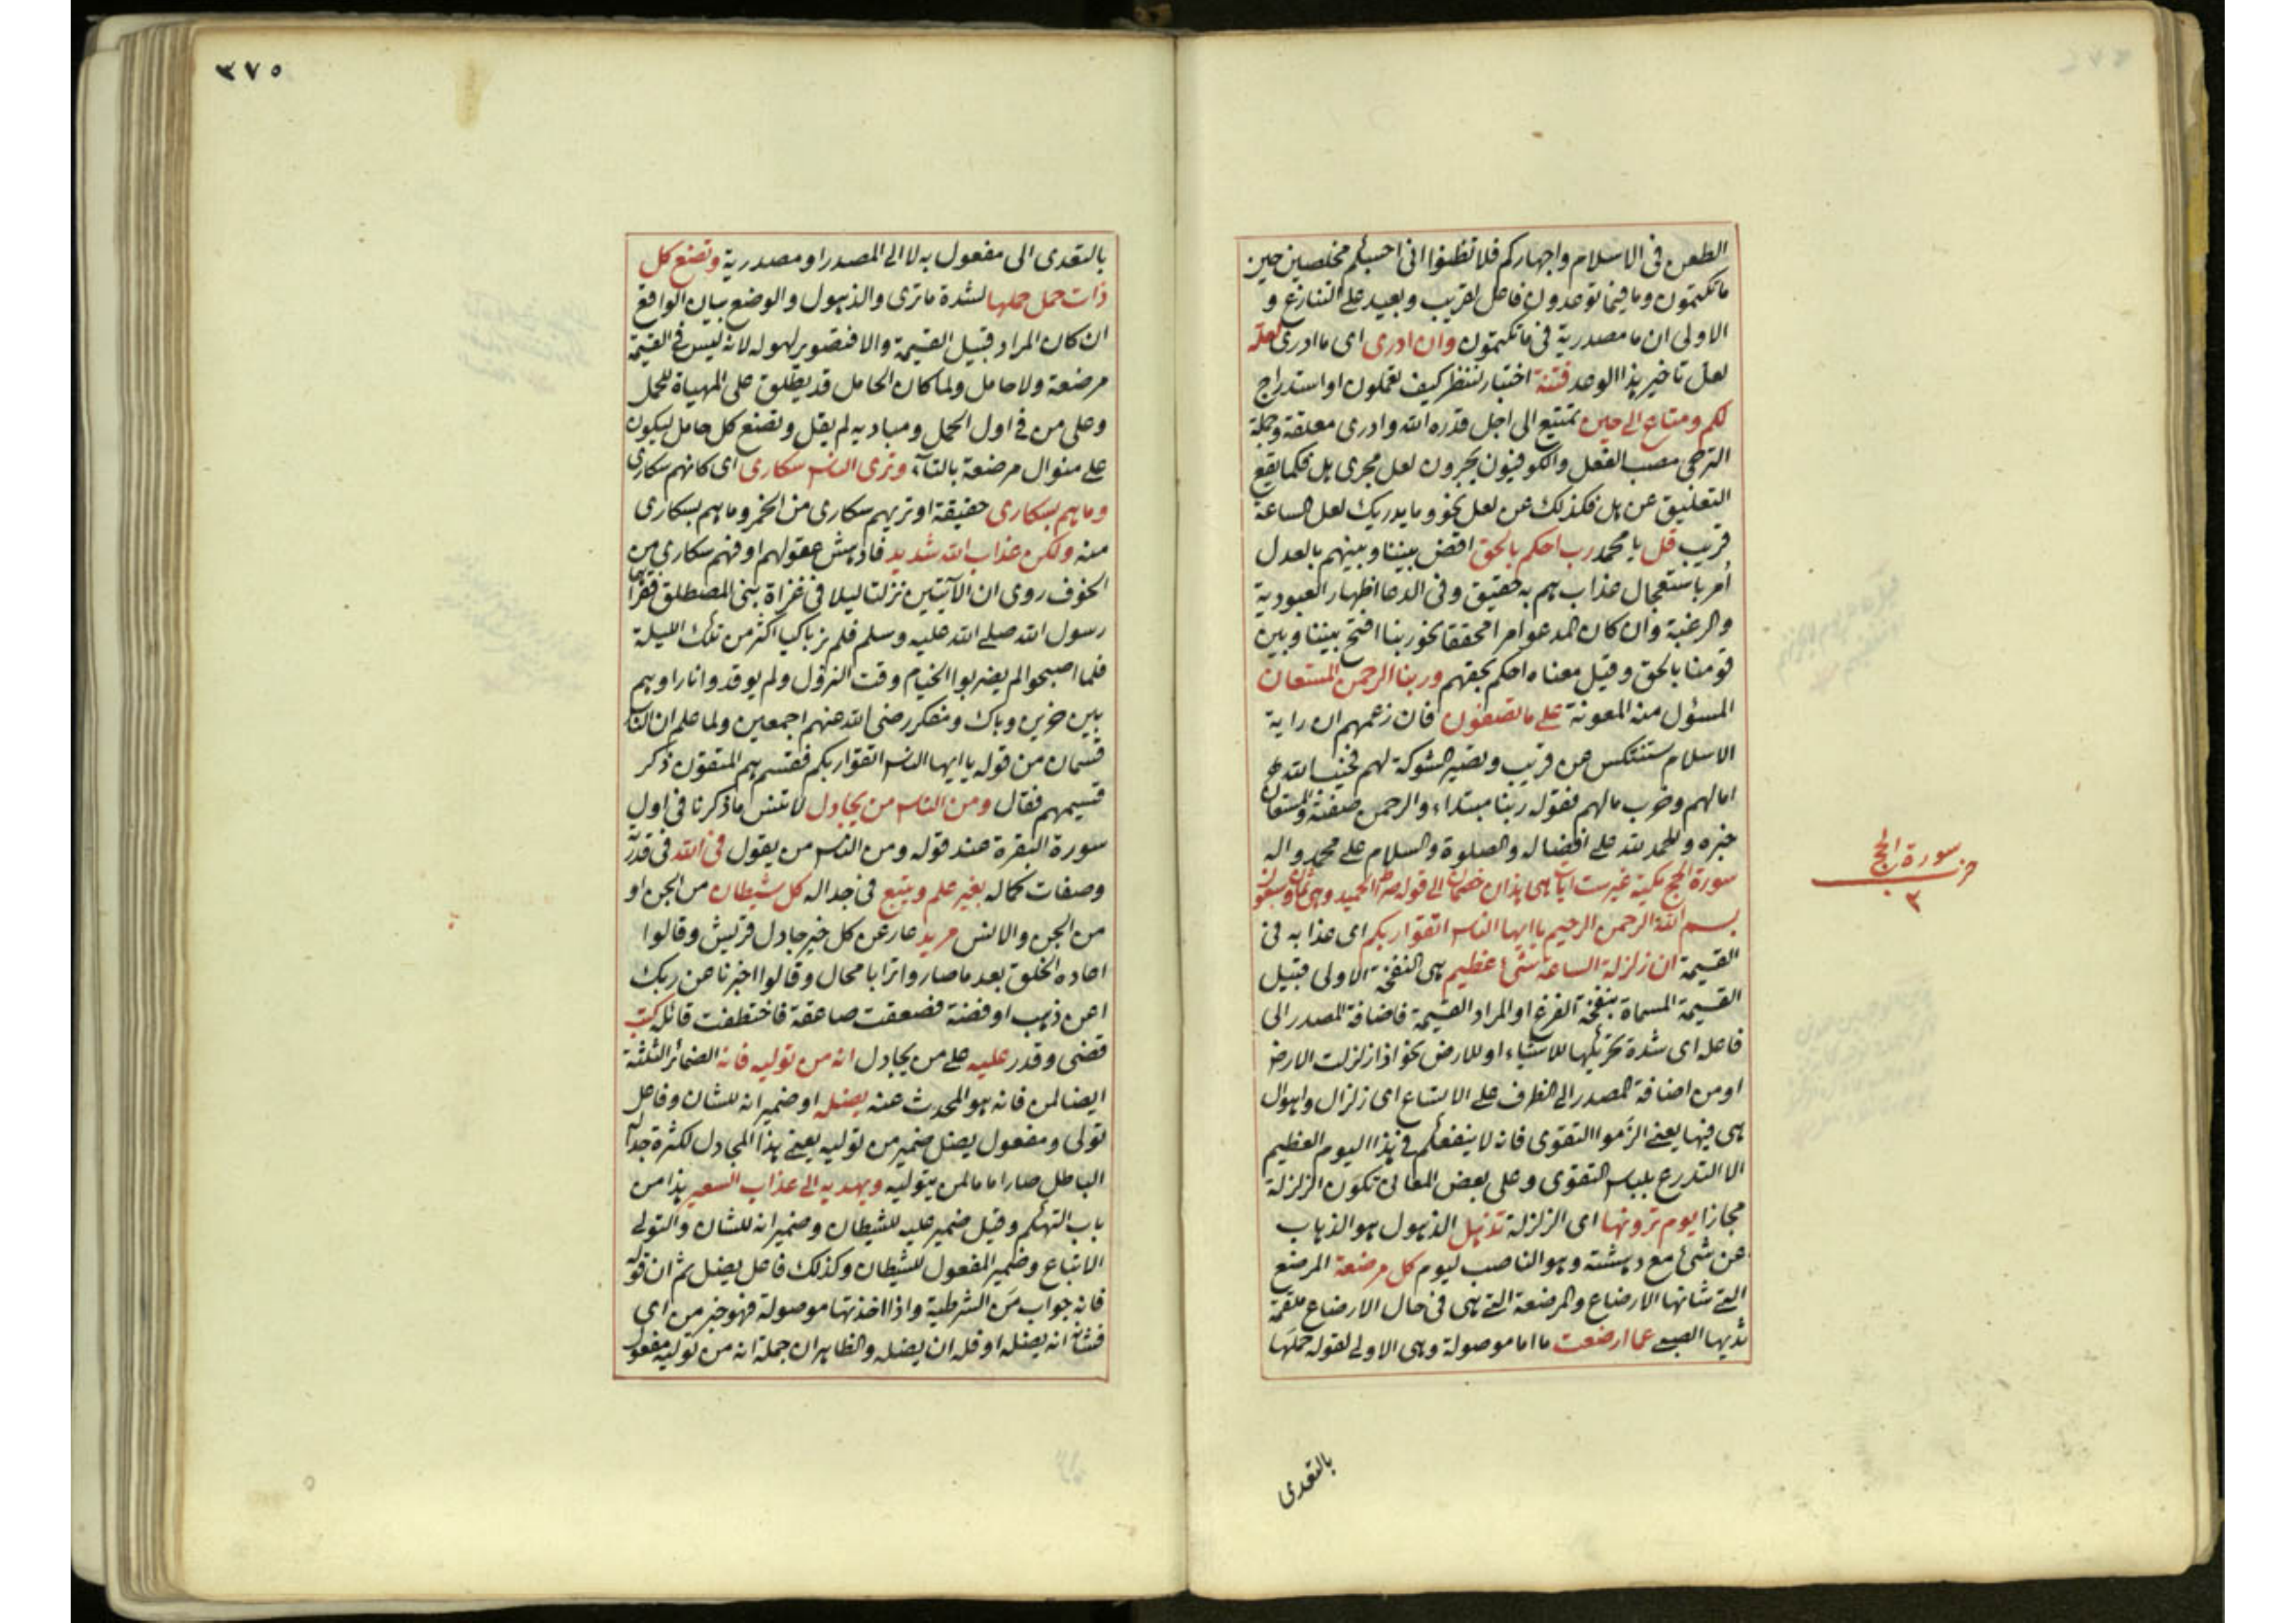 الطعن فى الاسلام واجهاركم فلا تظنوا انى احسبكم مخلصين حين
ما تكتمون وما فيما توعدون فاعل لقريب وبعيد على التنازع و
الاولى ان ما مصدرية فى ما تكتمون وان ادرى اى ما ادرى لعله
لعل تاخير هذا الوعد فتنة اختبار لننظر كيف تعملون او استدراج
لكم ومتاع الى حين تمتيع الى اجل قدره الله وادرى معلقة وجملة
الترجى مصب الفعل والكوفيون يجرون لعل مجرى هل فكما يقع
التعليق عن هل فكذلك عن لعل نحو وما يدريك لعل الساعة
قريب قل يا محمد رب احكم بالحق اقض بيننا وبينهم بالعدل
امر باستعجال عذاب هم به حقيق وفى الدعا اظهار العبودية
والرغبة وان كان المدعو امرا محققا نحو ربنا افتح بيننا وبين
قومنا بالحق وقيل معناه احكم بحقهم وربنا الرحمن المستعان
المسؤل منه المعونة على ما تصفون فان زعمهم ان راية
الاسلام ستنتكس عن قريب وتصير الشوكة لهم فخيب الله
امالهم وخرب مالهم فقوله ربنا مبتداء والرحمن صفته والمستعان
خبره والحمد لله على افضاله والصلوة والسلام على محمد واله
سورة الحج مكية غير ست ايات هى هذان خصمان الى قوله صراط الحميد وهى ثمان وسبعون
بسم الله الرحمن الرحيم يا ايها الناس اتقوا ربكم اى عذابه فى
القيمة ان زلزلة الساعة شئ عظيم هى النفخة الاولى قبيل
القيمة المسماة بنفخة الفزع او المراد القيمة فاضافة المصدر الى
فاعله اى شدة تحريكها للاشياء او للارض نحو اذا زلزلت الارض
او من اضافة المصدر الى الظرف على الاتساع اى زلزال واهوال
هى فيها يعنى الزموا التقوى فانه لا ينفعكم فى هذا اليوم العظيم
الا التدرع بلباس التقوى وعلى بعض المعانى تكون الزلزلة
مجازا يوم ترونها اى الزلزلة تذهل الذهول هو الذهاب
عن شئ مع دهشة وهو الناصب ليوم كل مرضعة المرضع
التى شانها الارضاع والمرضعة التى هى فى حال الارضاع ملقمة
ثديها الصبى عما ارضعت ما اما موصولة وهى الاولى لقوله حملها
بالتعدى
سورة الحج
٣
٣٧٥
بالتعدى الى مفعول به لا الى المصدر او مصدرية وتضع كل
ذات حمل حملها لشدة ما ترى والذهول والوضع بيان الواقع
ان كان المراد قبيل القيمة والا فتصوير لهوله لانه ليس فى القيمة
مرضعة ولا حامل ولما كان الحامل قد يطلق على المهياة للحمل
وعلى من فى اول الحمل ومباديه لم يقل وتضع كل حامل ليكون
على منوال مرضعة بالتاء وترى الناس سكارى اى كانهم سكارى
وما هم بسكارى حقيقة او تريهم سكارى من الخمر وما هم بسكارى
منه ولكن عذاب الله شديد فادهش عقولهم او فهم سكارى من
الخوف روى ان الآيتين نزلتا ليلا فى غزاة بنى المصطلق فقراها
رسول الله صلى الله عليه وسلم فلم ير باكيا اكثر من تلك الليلة
فلما اصبحوا لم يضربوا الخيام وقت النزول ولم يوقدوا نارا وهم
بين حزين وباك ومتفكر رضى الله عنهم اجمعين ولما علم ان الناس
قسمان من قوله يا ايها الناس اتقوا ربكم فقسم هم المتقون ذكر
قسيمهم فقال ومن الناس من يجادل لا تنس ما ذكرنا فى اول
سورة البقرة عند قوله ومن الناس من يقول فى الله فى قدرته
وصفات كماله بغير علم ويتبع فى جداله كل شيطان من الجن او
من الجن والانس مريد عار عن كل خير جادل قريش وقالوا
اعاده الخلق بعد ما صاروا ترابا محال وقالوا اخبرنا عن ربك
اعن ذهب او فضة فصعقت صاعقة فاختطفت قائله كتب
قضى وقدر عليه على من يجادل انه من توليه فانه الضمائر الثلثة
ايضا لمن فانه هو المحدث عنه يضله او ضمير انه للشان وفاعل
تولى ومفعول يضل ضمير من توليه يعنى هذا المجادل لكثرة جداله
الباطل صار اماما لمن يتوليه ويهديه الى عذاب السعير هذا من
باب التهكم وقيل ضمير عليه للشيطان وضمير انه للشان والتولى
الاتباع وضمير المفعول للشيطان وكذلك فاعل يضل ثم ان قوله
فانه جواب من الشرطية واذا اخذتها موصولة فهو خبر من اى
فشانه انه يضله او فله ان يضله والظاهر ان جملة انه من توليه مفعول